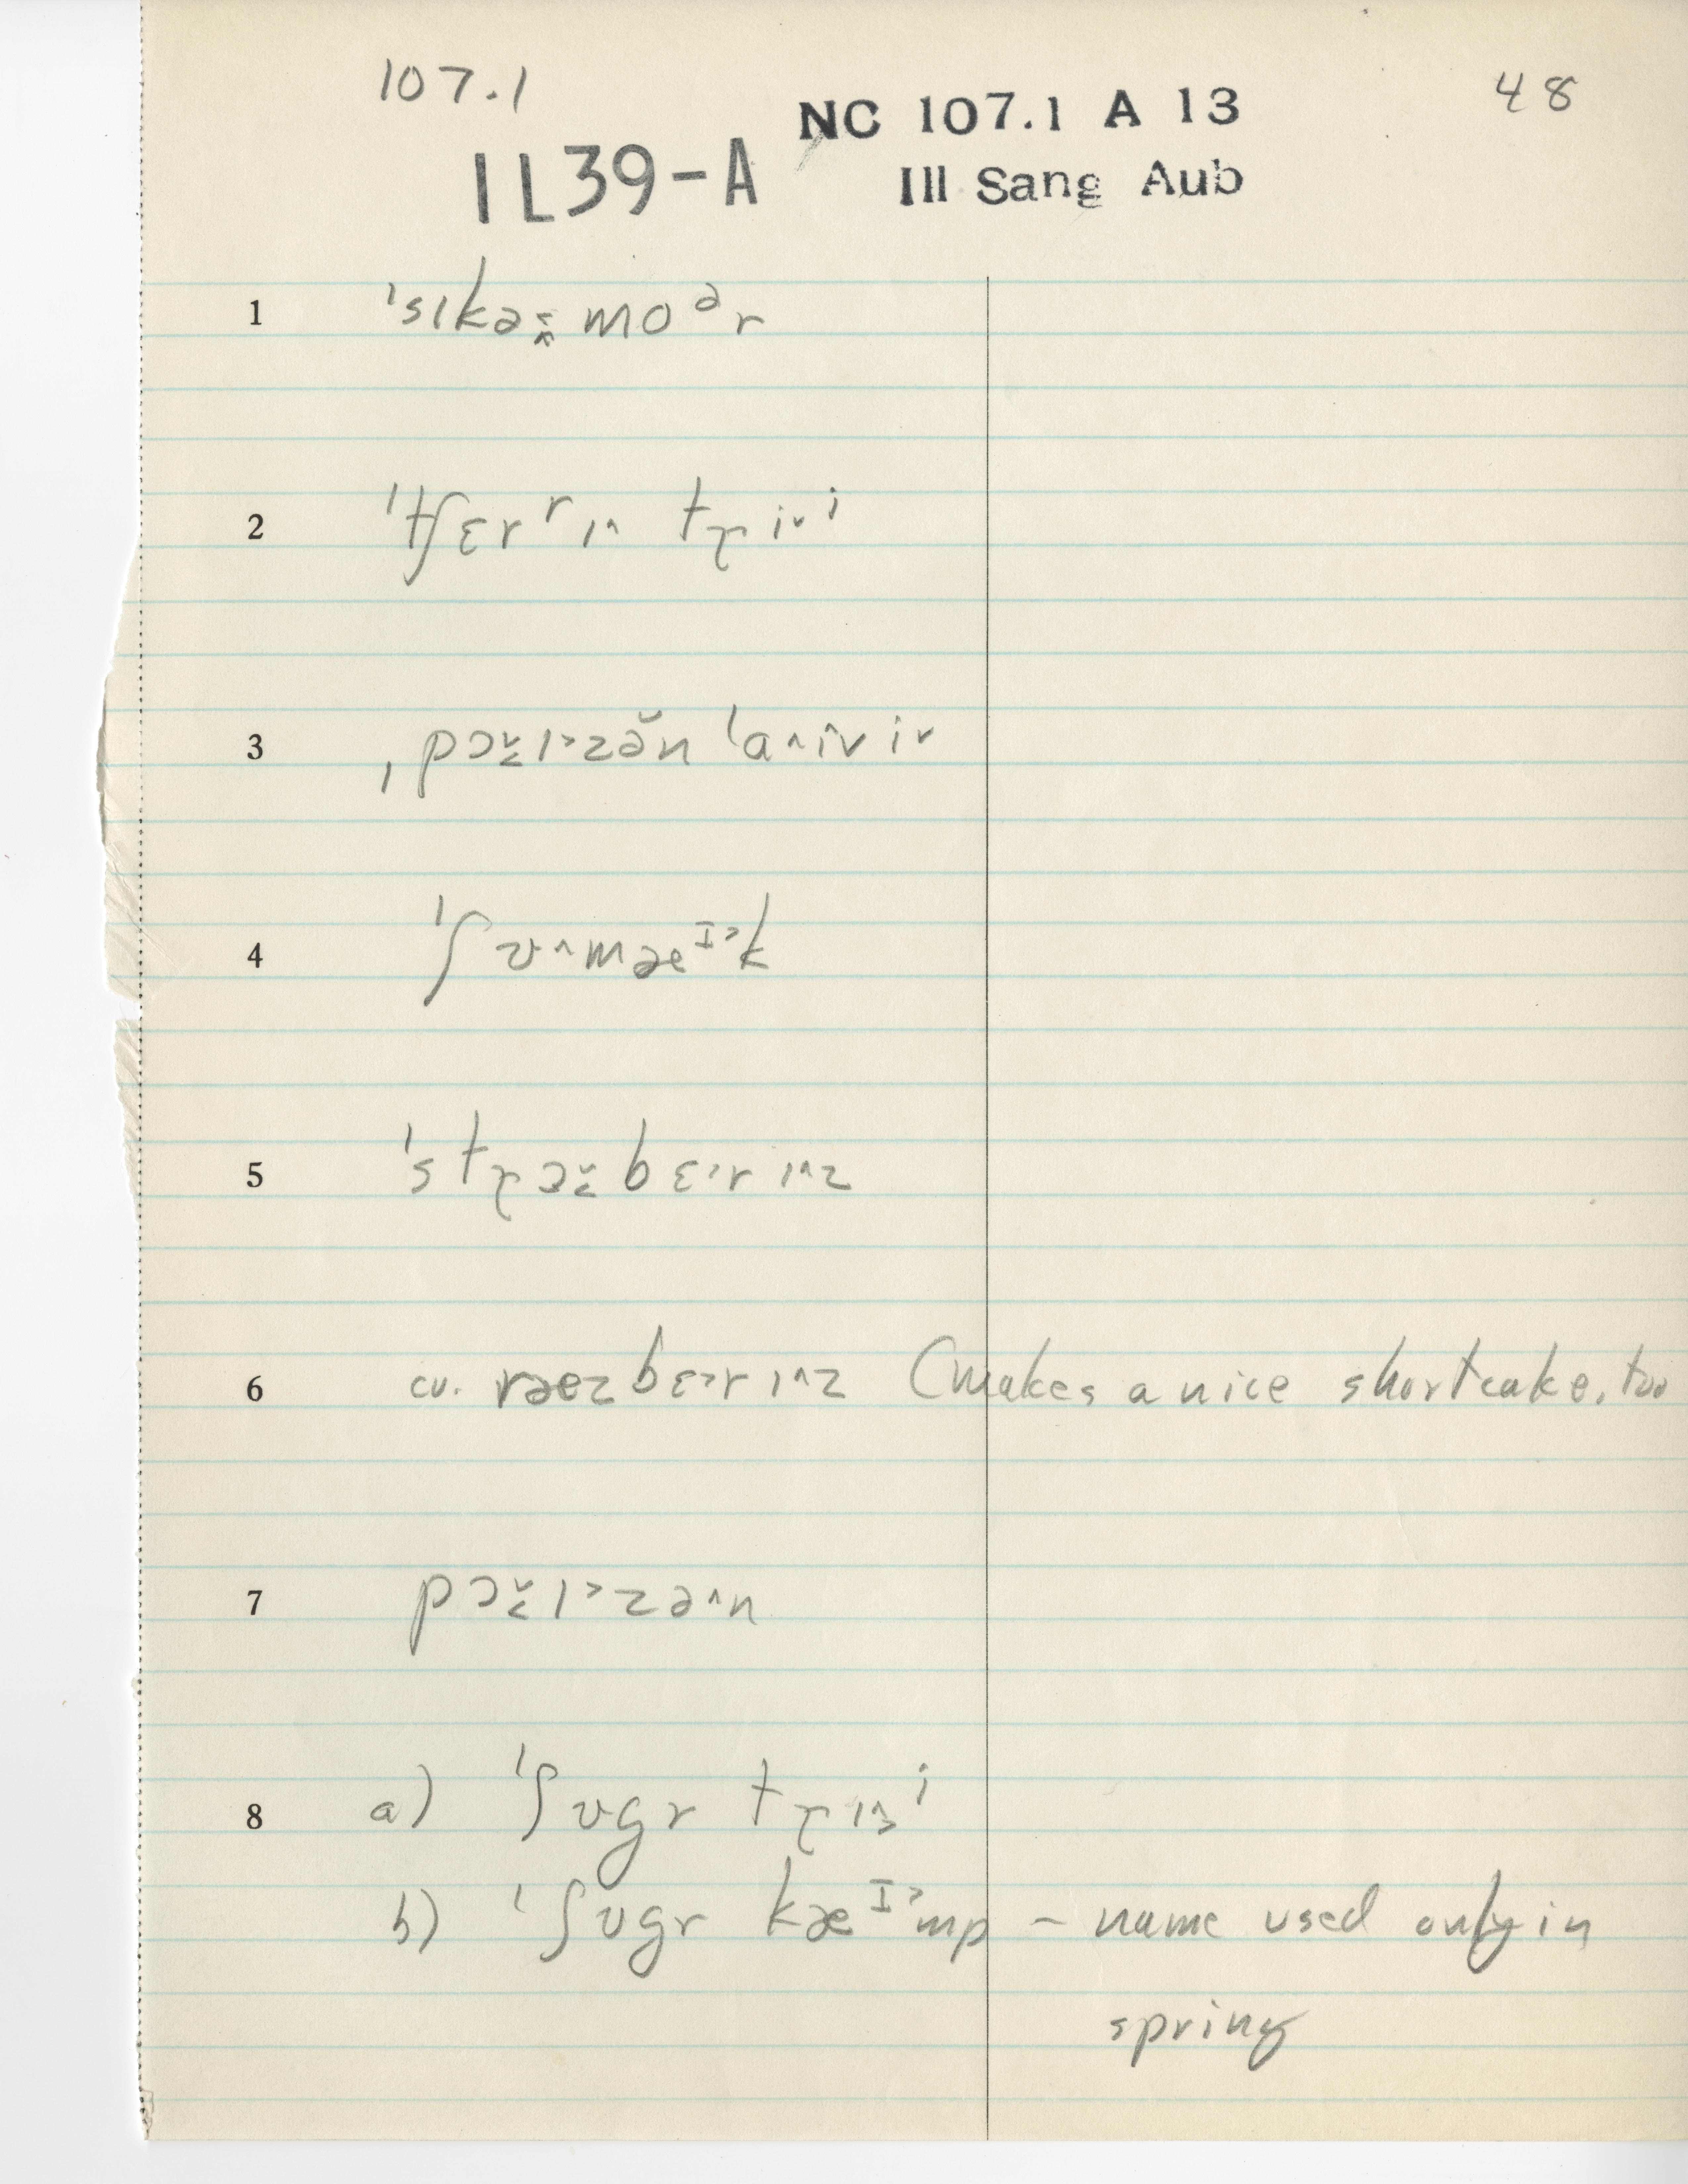 107.1
NC 107.1 A 13
48
IL39-A
Ill Sang Aub
1 ˈsɪkə̬moᵊr
2 ˈtʃɛrʳɪ^ tɽi˅ⁱ
3 ˌpɔ˅ɪ˃zə̆n ˈɑ^ɪ˅vi˅
4 ˈʃʊ^mæᴵ˃k
5 ˈstɽɔ˅bɛ˃rɪ^z
6 cv. ræzbɛ˃rɪ^z (makes a nice shortcake, too
7 pɔ˅ɪ˃zə^n
8 a) ˈʃʊgr tɽɪ^ⁱ
b) ˈʃʊgr kæᴵ˃mp – name used only in
spring